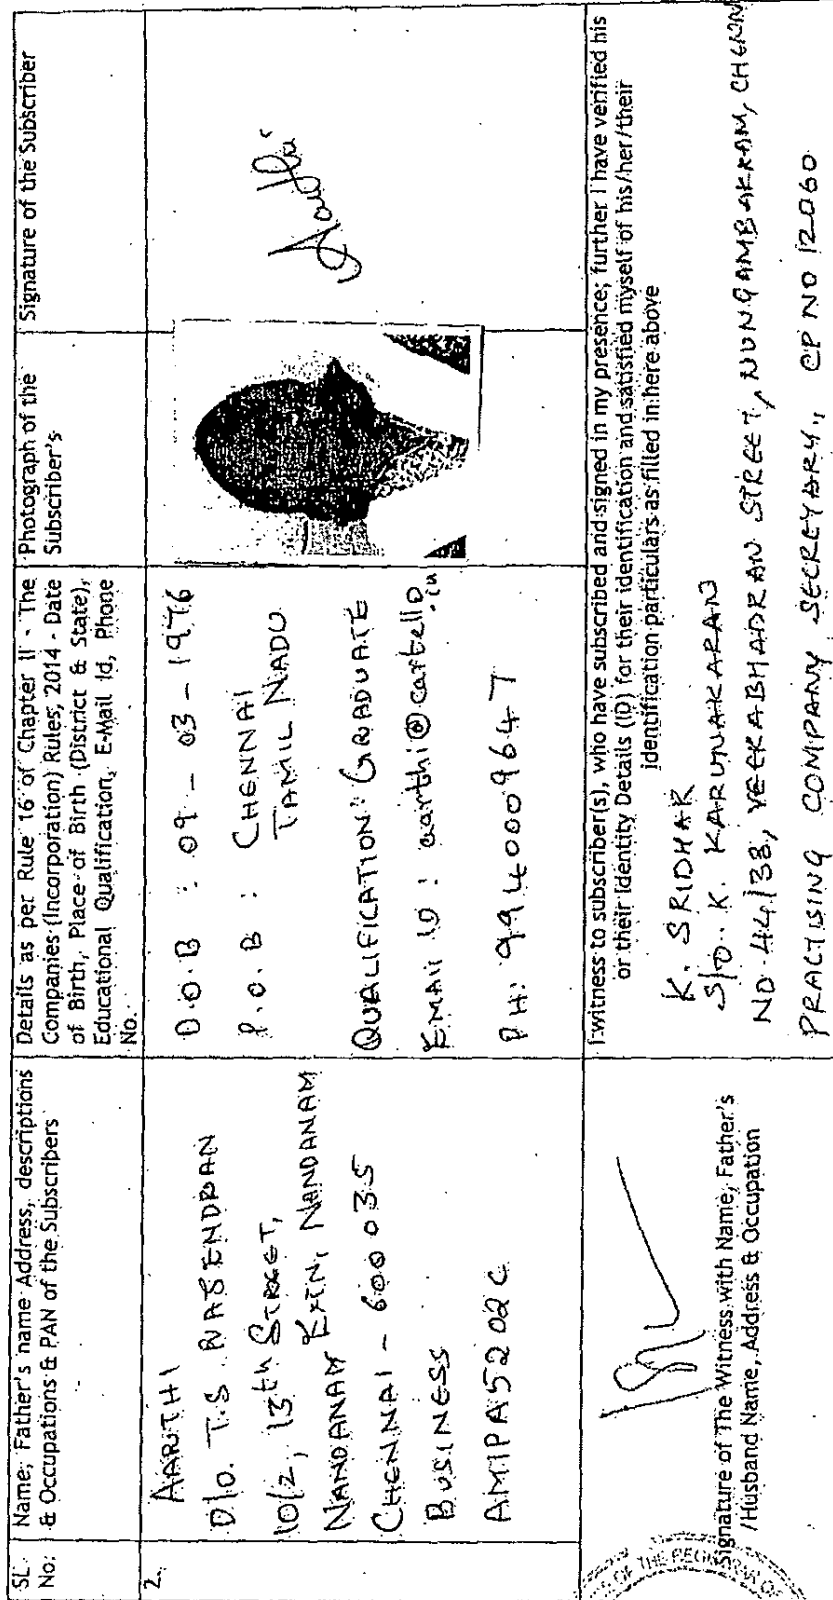 SL. No:
Name, Father's name Address, descriptions
& Occupations & PAN of the Subscribers
Details as per Rule 16 of Chapter II - The
Companies (Incorporation) Rules, 2014 - Date
of Birth, Place of Birth (District & State),
Educational Qualification, E-Mail Id, Phone
No.
Photograph of the
Subscriber's
Signature of the Subscriber
2.
AARTHI
D/O. T.S. RAJENDRAN
10/2, 13th STREET,
NANDANAM EXTN, NANDANAM
CHENNAI - 600035
BUSINESS
AMIPA5202C
D.O.B : 09-03-1976
P.O.B : CHENNAI
TAMIL NADU
QUALIFICATION: GRADUATE
EMAIL ID : aarthi@cartello.in
PH: 9940009647
Aarthi
Signature of The Witness with Name, Father's
/Husband Name, Address & Occupation
I witness to subscriber(s), who have subscribed and signed in my presence; further I have verified his
or their Identity Details (ID) for their identification and satisfied myself of his/her/their
identification particulars as filled in here above
K. SRIDHAR
S/O. K. KARUNAKARAN
NO 44/38, VEERABHADRAN STREET, NUNGAMBAKKAM, CHENN
PRACTISING COMPANY SECRETARY, CP NO 12060
OF THE REGISTRAR OF